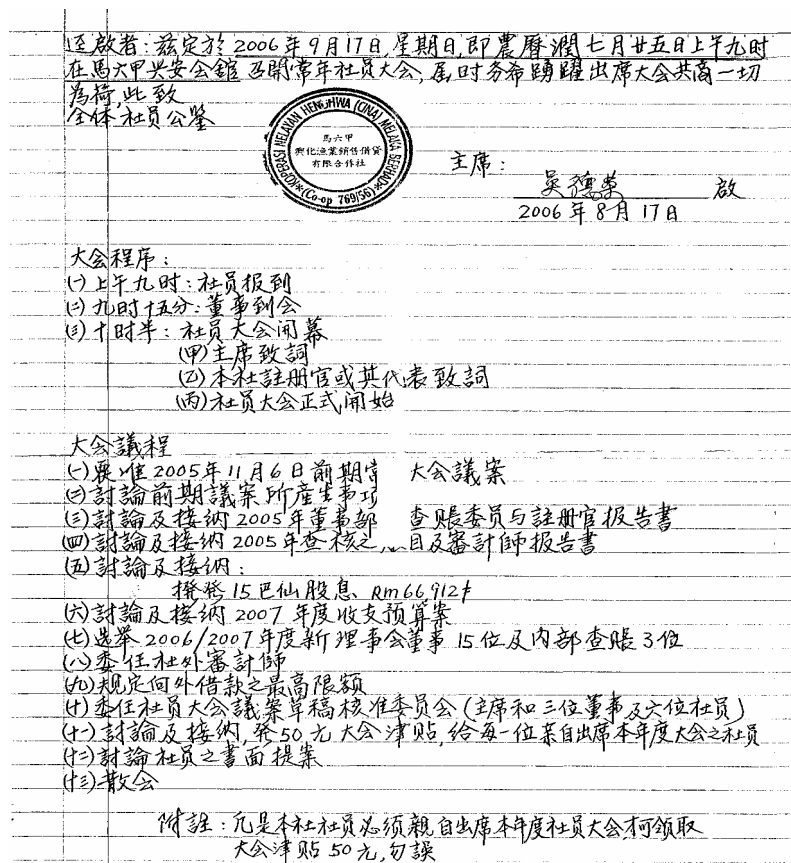 迳啟者:兹定於2006年9月17日,星期日,即農曆潤七月廿五日上午九时
在馬六甲兴安会舘召開常年社员大会,届时务希踴躍出席大会共商一切
為荷,此致
全体社员公鉴
KOPERASI NELAYAN HENGHWA (CINA) MELAKA SERHAD
馬六甲
興化漁業銷售借貸
有限合作社
(Co-op 769/56)
主席:
吴德荣 啟
2006年8月17日
大会程序:
㈠上午九时:社员报到
㈡九时十五分:董事到会
㈢十时半:社员大会開幕
(甲)主席致詞
(乙)本社註册官或其代表致詞
(丙)社员大会正式開始
大会議程
㈠要准2005年11月6日前期常 大会議案
㈡討論前期議案所産生事项
㈢討論及接纳2005年董事部 查賬委员与註册官报告書
㈣討論及接纳2005年查核之 目及審計師报告書
㈤討論及接纳:
撥発15巴仙股息 Rm66,912/
㈥討論及接纳2007年度收支预算案
㈦选举2006/2007年度新理事会董事15位及内部查賬3位
㈧委任社外審計師
㈨规定向外借款之最高限額
㈩委任社员大会議案草稿核准委员会(主席和三位董事及六位社员)
(十一)討論及接纳,発50元大会津贴,给每一位亲自出席本年度大会之社员
(十二)討論社员之書面提案
(十三)散会
附註:凡是本社社员必须親自出席本年度社员大会,才可领取
大会津贴50元,勿誤